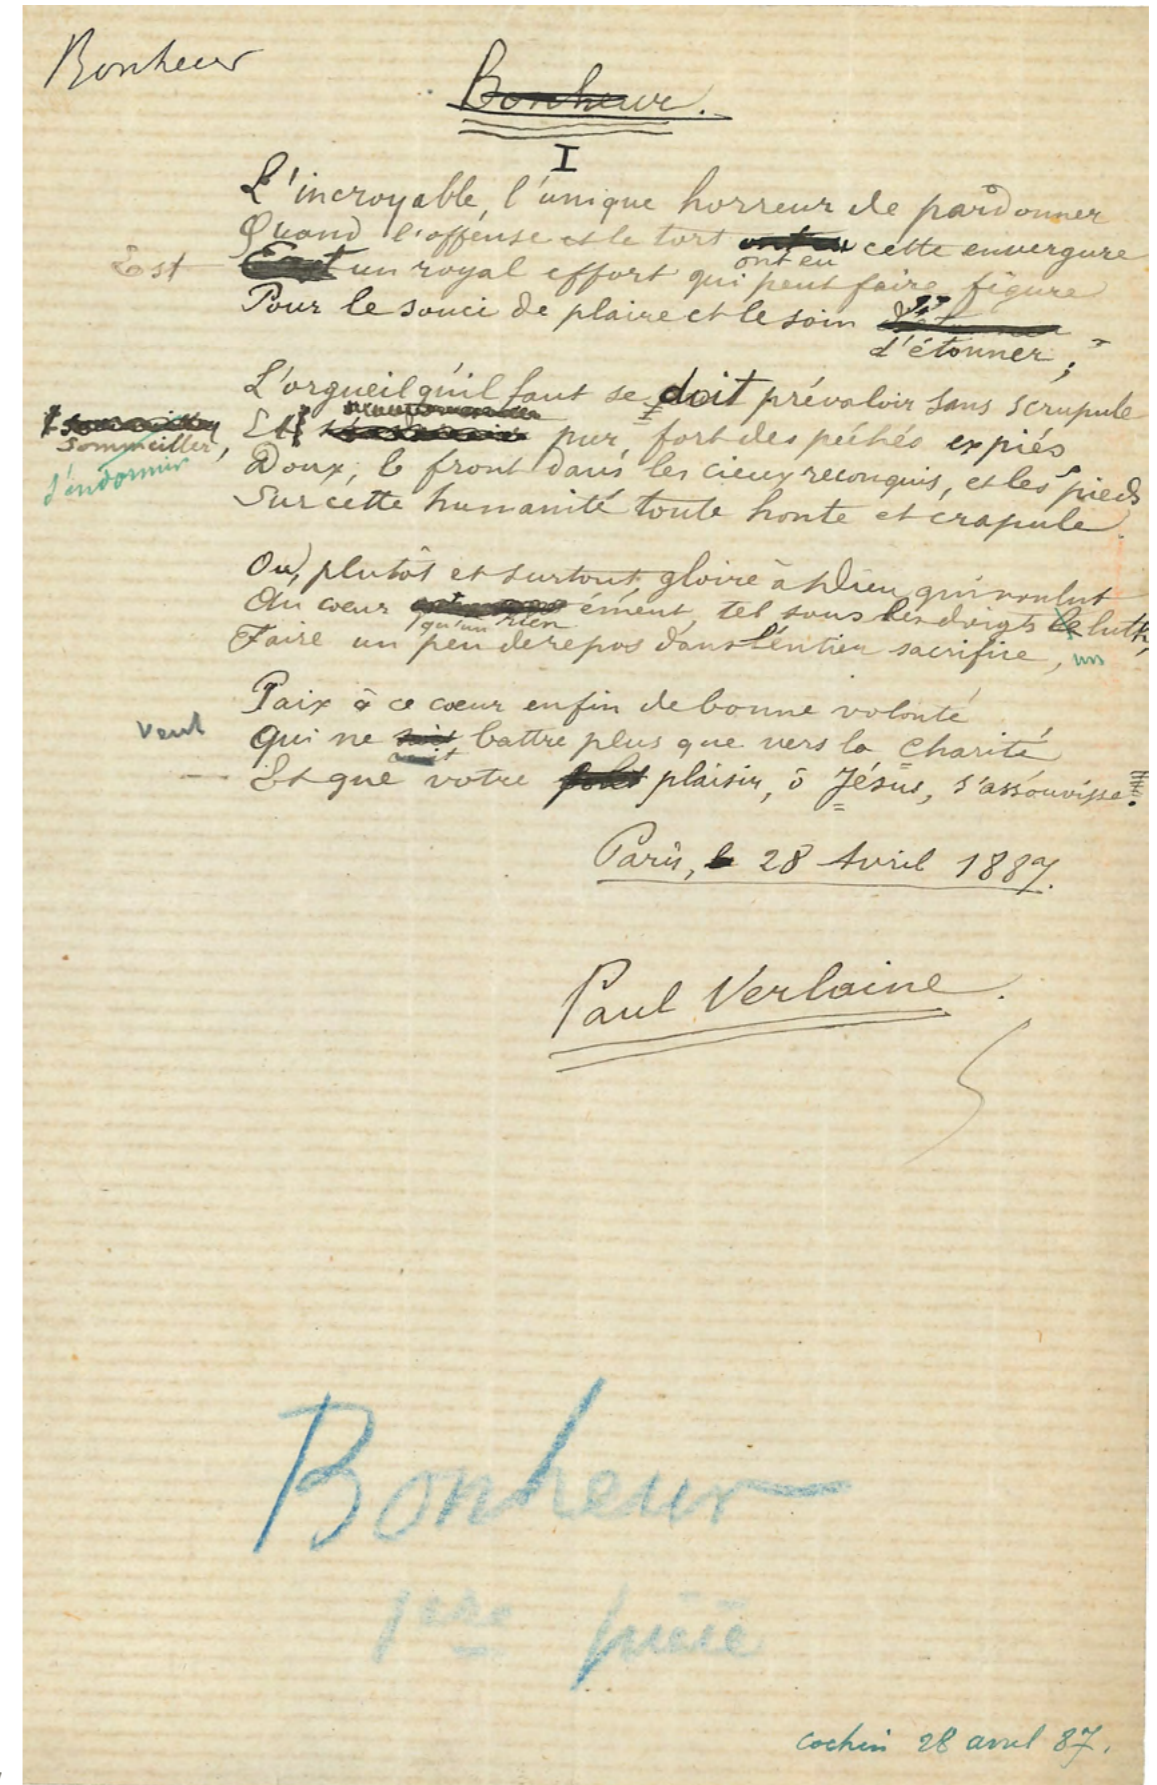 Bonheur
Bonheur.
I
L'incroyable, l'unique horreur de pardonner
Quand l'offense et le tort ont eu cette envergure
ont eu
Est un royal effort qui peut faire figure
Pour le souci de plaire et le soin
d'étonner ;
L'orgueil qu'il faut se doit prévaloir sans scrupule
Et pur, fort des péchés expiés
sommeiller,
s'endormir
Doux, le front dans les cieux reconquis, et les pieds
Sur cette humanité toute honte et crapule.
Ou, plutôt et surtout, gloire à Dieu qui voulut
Au cœur ému, tel sous les doigts le luth,
qu'un rien
un
Faire un peu de repos dans l'entier sacrifice,
Paix à ce cœur enfin de bonne volonté
Veut
Qui ne battre plus que vers la Charité
Et que votre plaisir, ô Jésus, s'assouvisse.
Paris, le 28 Avril 1887.
Paul Verlaine.
Bonheur
1ère pièce
Cochin 28 avril 87.